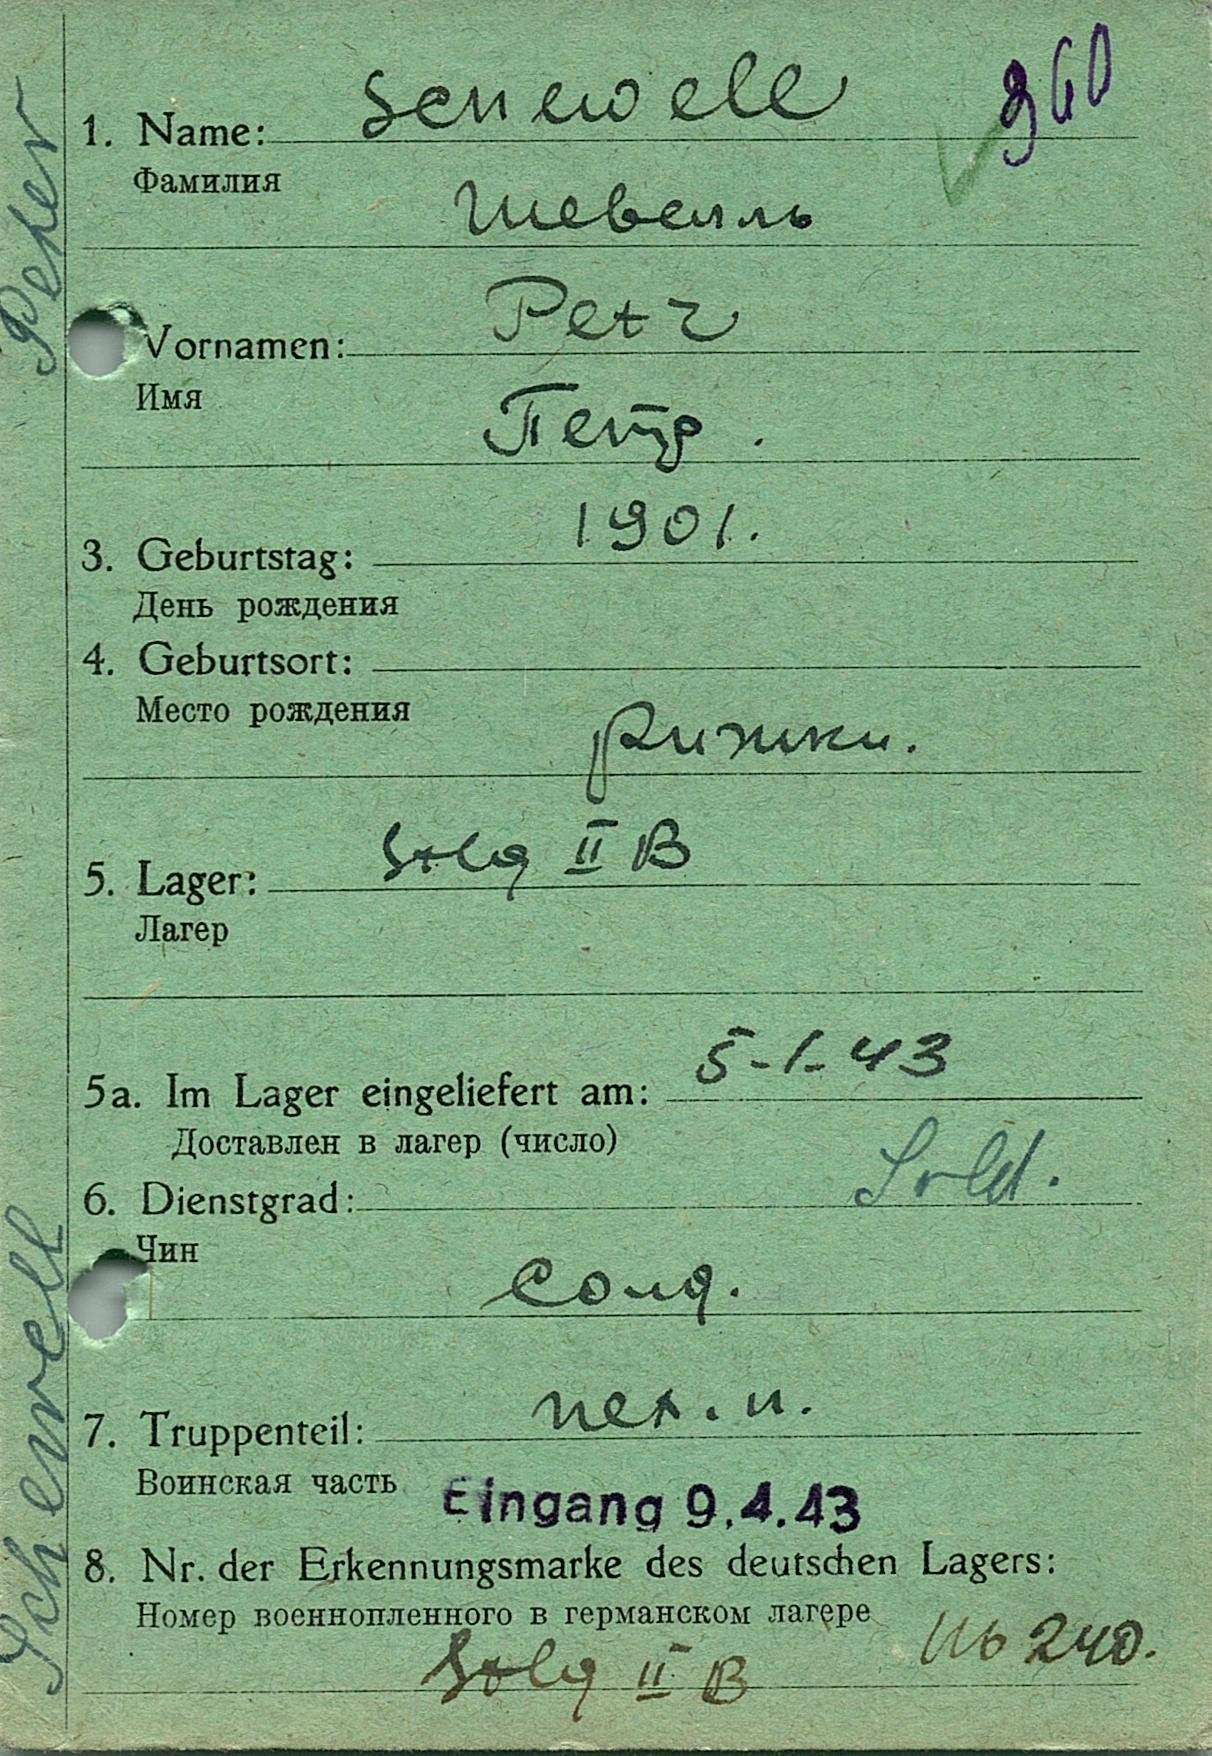 360
1. Name: Schewell
Фамилия
Шевелль
Vornamen: Petr
Имя
Петр.
3. Geburtstag: 1901.
День рождения
4. Geburtsort:
Место рождения
Рижки.
5. Lager: Stlg II B
Лагер
5a. Im Lager eingeliefert am: 5-1-43
Доставлен в лагер (число)
6. Dienstgrad: Sold.
Чин
Солд.
7. Truppenteil: пех. п.
Воинская часть
Eingang 9.4.43
8. Nr. der Erkennungsmarke des deutschen Lagers:
Номер военнопленного в германском лагере
Stlg II B
Schewell Peter